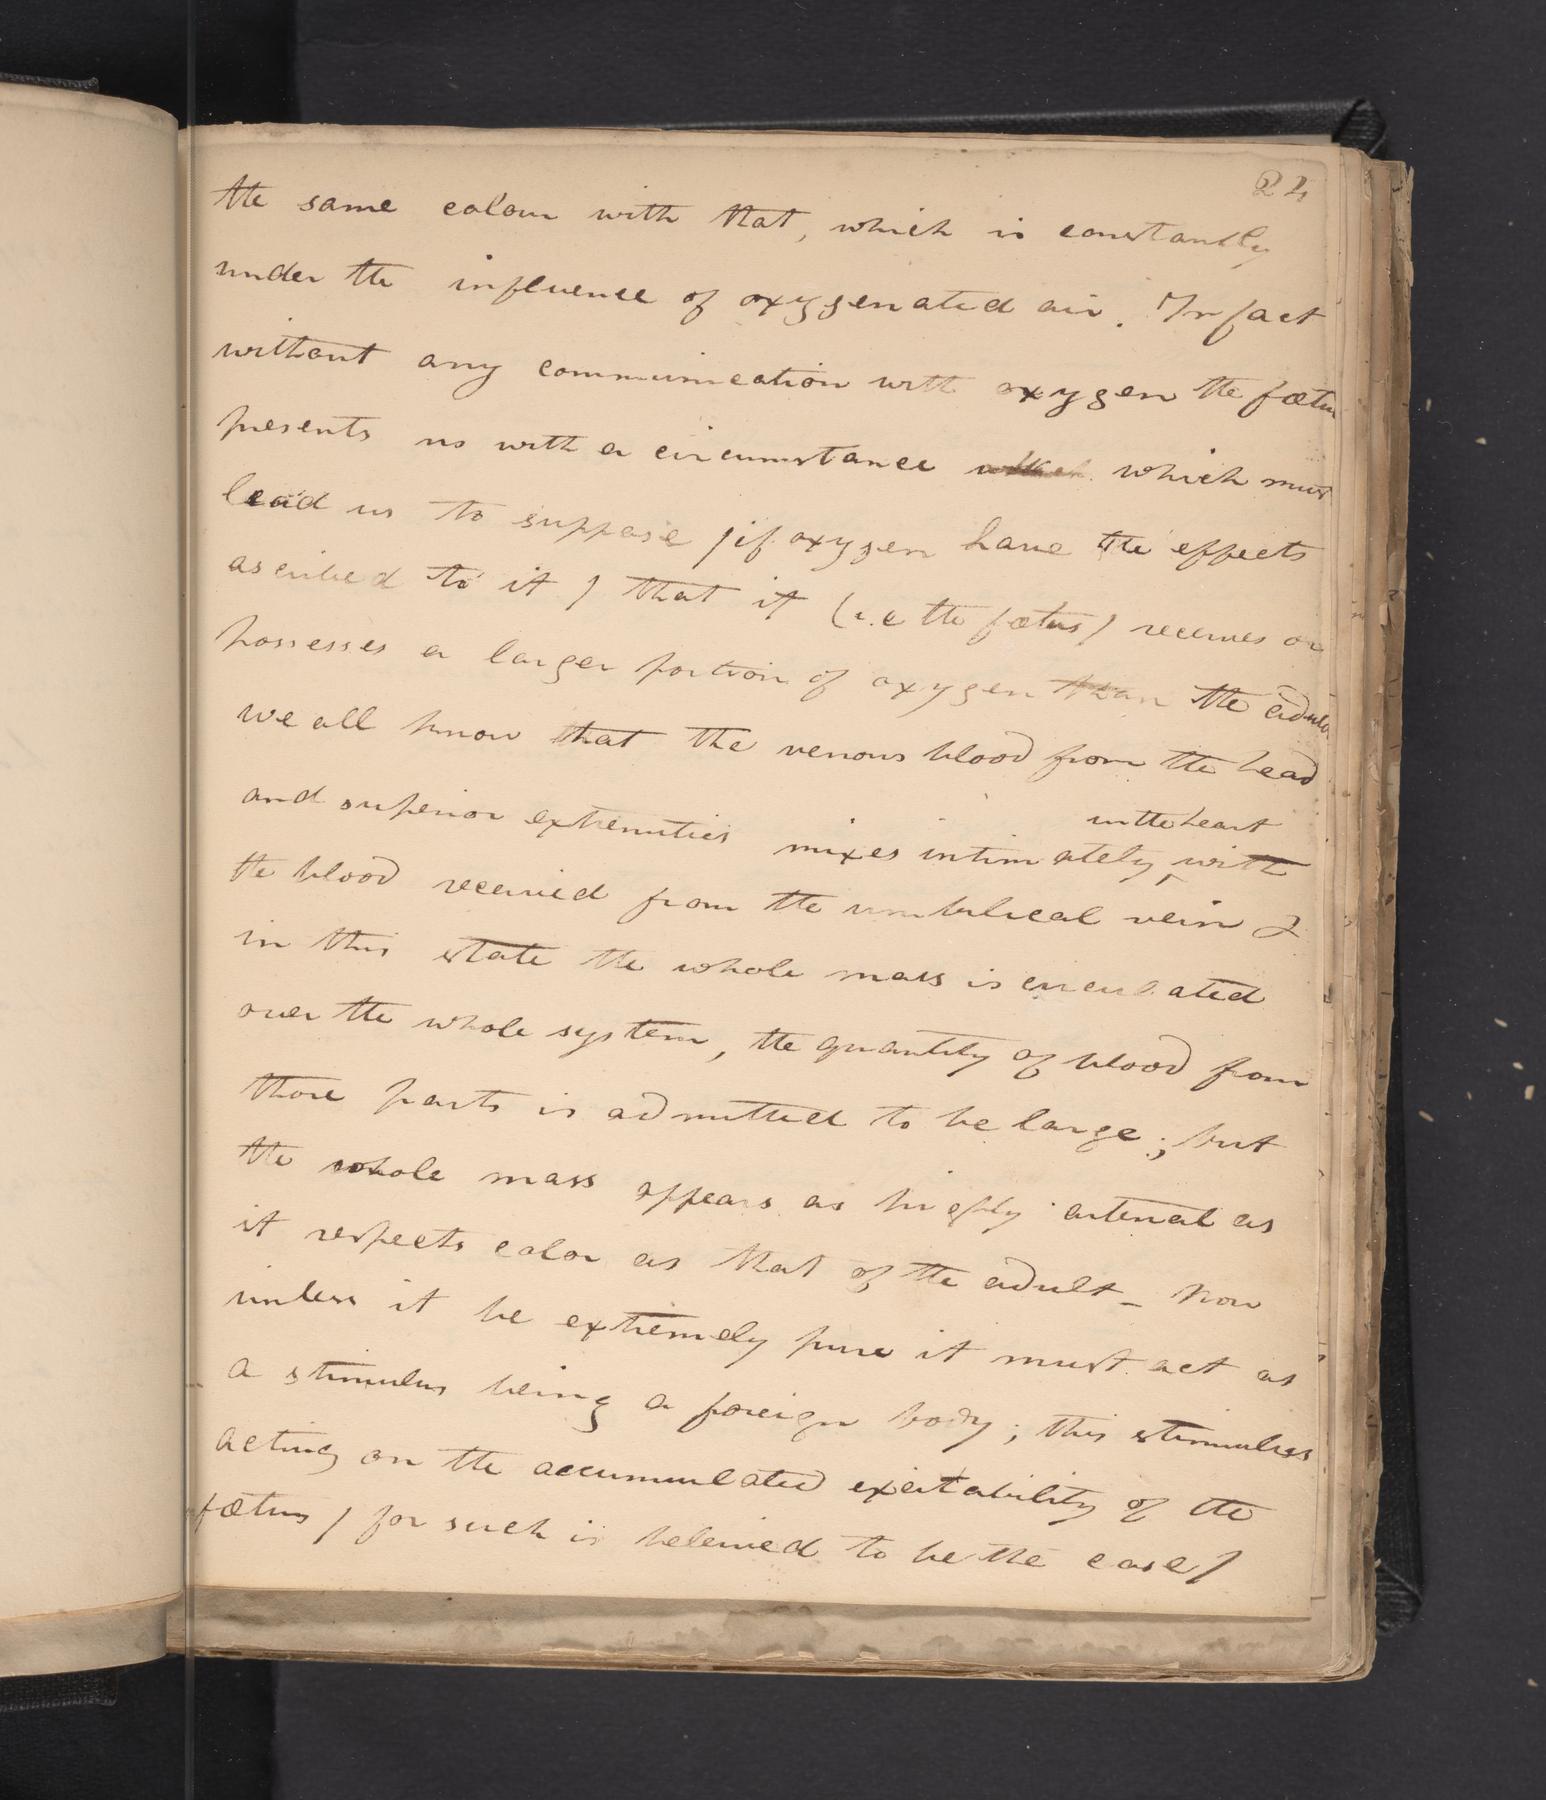 24
the same colour with that, which is constantly
under the influence of oxygenated air. In fact
without any communication with oxygen the fœtus
presents us with a circumstance which which must
lead us to suppose / if oxygen have the effects
ascribed to it / that it (i.e the fœtus / receives or
possesses a larger portion of oxygen than the adult
we all know that the venous blood from the head
in the heart
and superior extremities mixes intimately ‸ with
the blood received from the umbilical vein &
in this state the whole mass is circulated
over the whole system, the quantity of blood from
those parts is admitted to be large; but
the whole mass appears as highly arterial as
it respects color as that of the adult – Now
unless it be extremely pure it must act as
a stimulus being a foreign body; this stimulus
acting on the accumulated exitability of the
fœtus / for such is beleived to be the case /